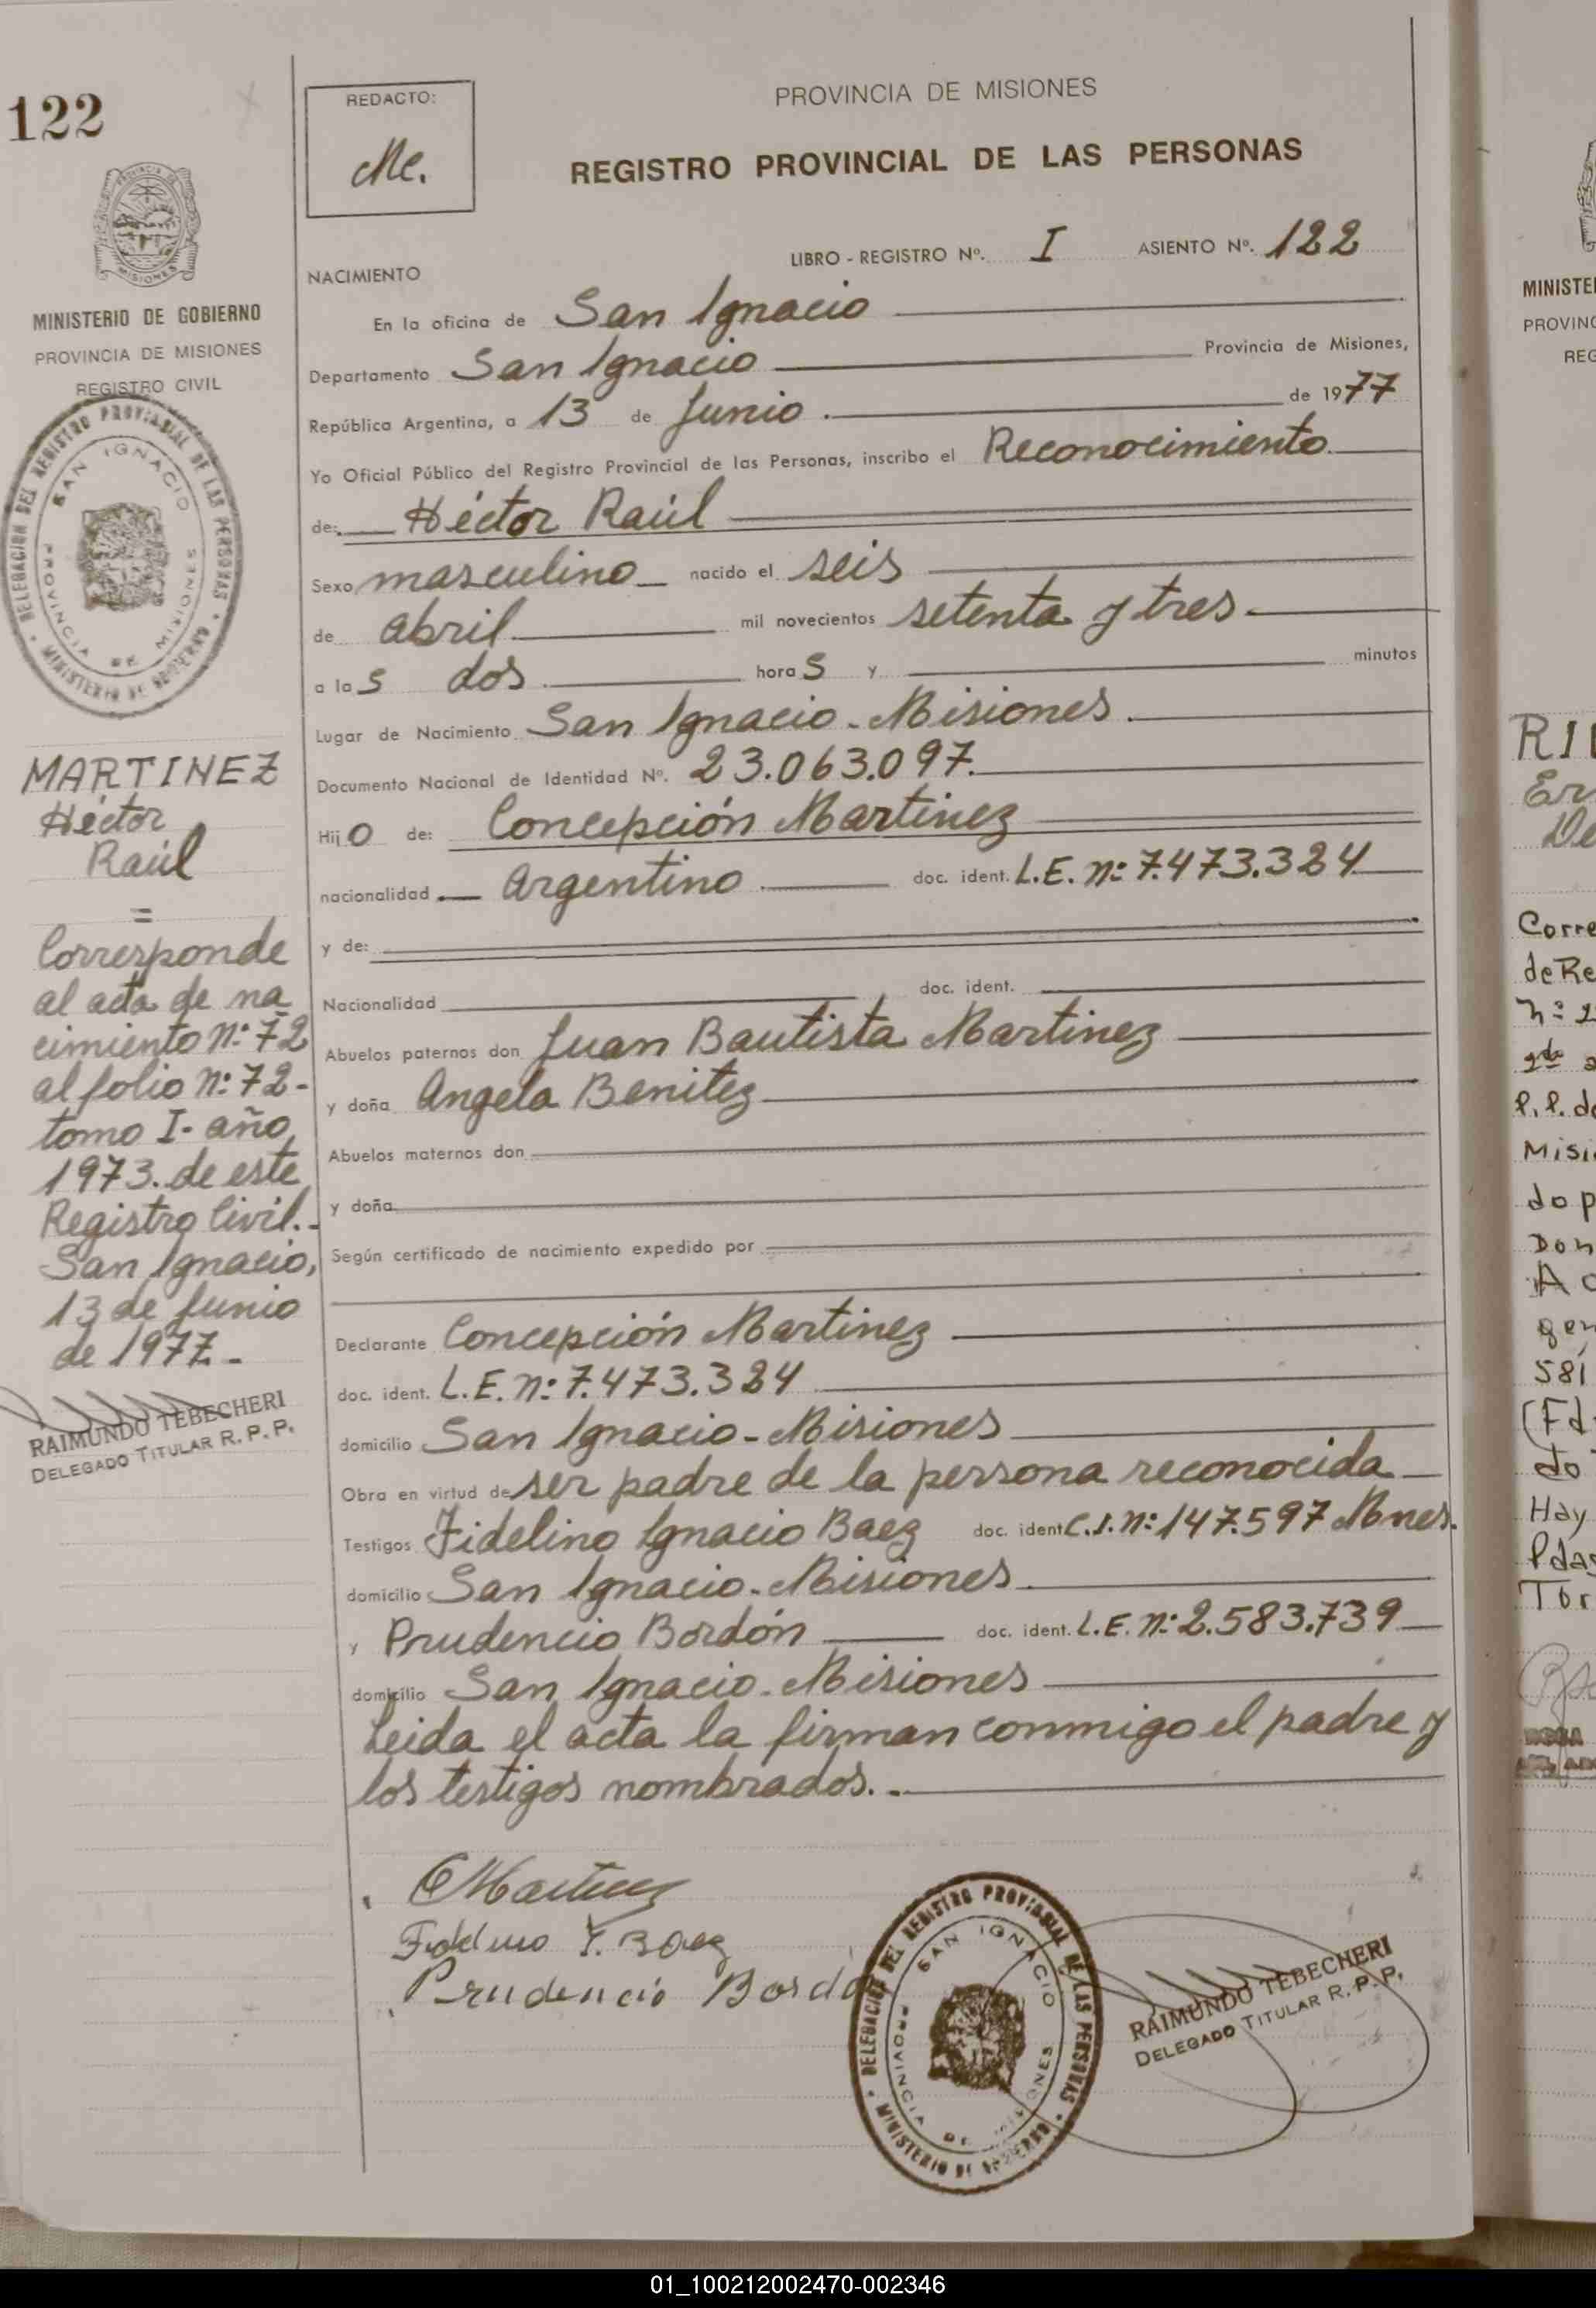 122
REDACTO:
Me.
PROVINCIA DE MISIONES
REGISTRO PROVINCIAL DE LAS PERSONAS
LIBRO - REGISTRO Nº. I ASIENTO Nº. 122
NACIMIENTO
En la oficina de San Ignacio
Departamento San Ignacio Provincia de Misiones,
República Argentina, a 13 de Junio. de 1977
Yo Oficial Público del Registro Provincial de las Personas, inscribo el Reconocimiento.
de: Héctor Raúl
Sexo masculino nacido el seis
de abril mil novecientos setenta y tres
a las dos horas y minutos
Lugar de Nacimiento San Ignacio - Misiones.
Documento Nacional de Identidad Nº. 23.063.097.
Hijo de: Concepción Martinez
nacionalidad Argentino doc. ident. L.E. nº 7.473.324
y de:
Nacionalidad doc. ident.
Abuelos paternos don Juan Bautista Martinez
y doña Angela Benitez
Abuelos maternos don
y doña
Según certificado de nacimiento expedido por
Declarante Concepción Martinez
doc. ident. L.E. nº 7.473.324
domicilio San Ignacio - Misiones
Obra en virtud de ser padre de la persona reconocida
Testigos Fidelino Ignacio Baez doc. ident C.I. nº 147.597 Mnes.
domicilio San Ignacio - Misiones
y Prudencio Bordón doc. ident. L.E. nº 2.583.739
domicilio San Ignacio - Misiones
Leida el acta la firman conmigo el padre y
los testigos nombrados. -
CMartinez
Prudencio Bordó
DELEGACION DEL REGISTRO PROVINCIAL DE LAS PERSONAS
MINISTERIO DE GOBIERNO
SAN IGNACIO
PROVINCIA DE MISIONES
RAIMUNDO TEBECHERI
DELEGADO TITULAR R. P. P.
MINISTERIO DE GOBIERNO
PROVINCIA DE MISIONES
REGISTRO CIVIL
DELEGACION DEL REGISTRO PROVINCIAL DE LAS PERSONAS
MINISTERIO DE GOBIERNO
SAN IGNACIO
PROVINCIA DE MISIONES
MARTINEZ
Héctor
Raúl
=
Corresponde
al acta de na
cimiento nº 72
al folio nº 72 -
tomo I - año
1973. de este
Registro Civil. -
San Ignacio,
13 de Junio
de 1977. -
RAIMUNDO TEBECHERI
DELEGADO TITULAR R. P. P.
MINISTE
PROVINC
REG
RI
Er
De
Corre
de Re
Misi
do p
Don
gen
581
(Fd
do
Hay
Pdas
Tor
01_100212002470-002346